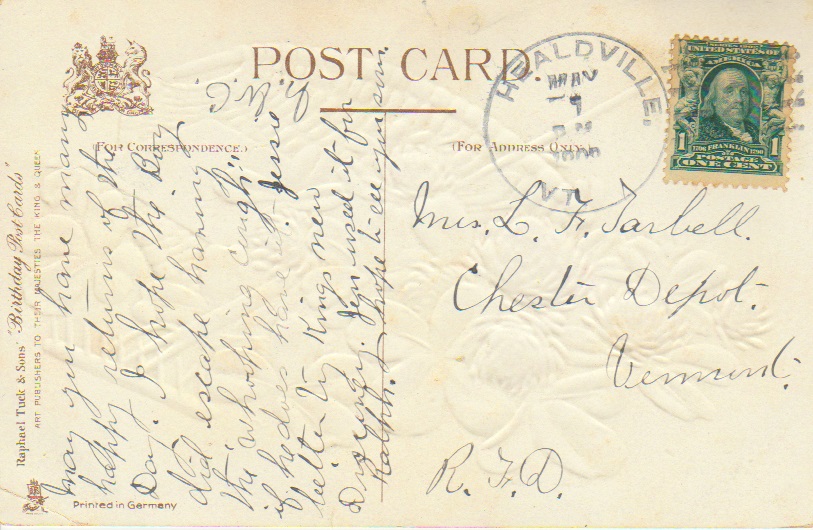 POST CARD.
(FOR CORRESPONDENCE.)
(FOR ADDRESS ONLY.)
HEALDVILLE,
MAY
VT.
SERIES 1902
UNITED STATES OF
AMERICA
1706 FRANKLIN 1790
POSTAGE
1 ONE CENT 1
Mrs. L. F. Tarbell.
Chester Depot.
Vermont.
R. F. D.
May you have many
happy returns of the
Day. I hope the Boy
did escape having
the whooping cough.
if he does have it Jessie
better try Kings new
Discovery. Jem used it for
Ralph. I hope to see you soon.
Raphael Tuck & Sons' "Birthday Post Cards"
ART PUBLISHERS TO THEIR MAJESTIES THE KING & QUEEN
Printed in Germany